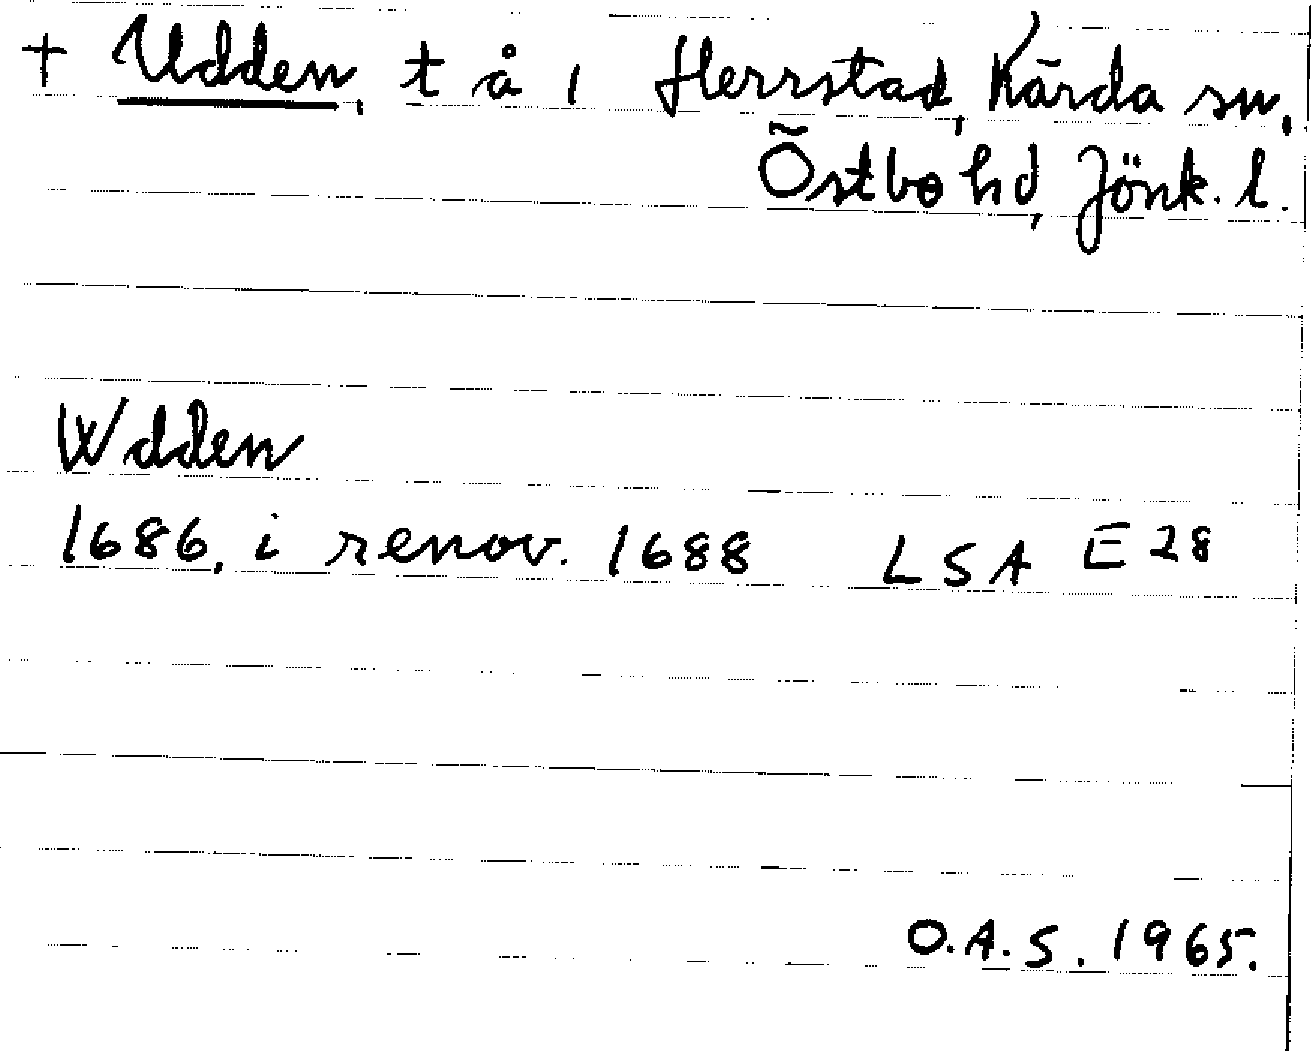 + Udden, t å i Herrstad, Kärda sn,
Östbo hd, Jönk. l.
Wdden
1686, i renov. 1688 LSA E 28
O.A.S. 1965.